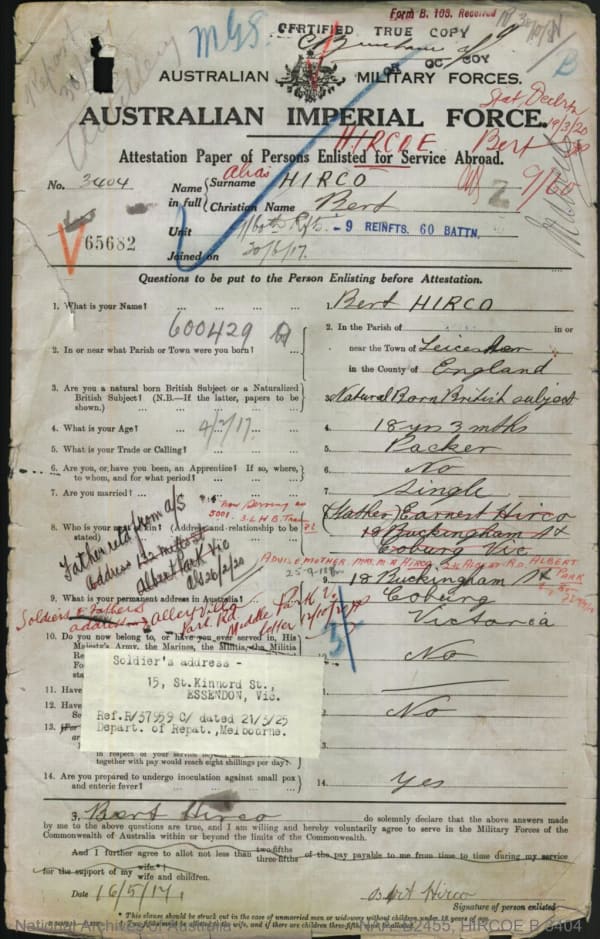 Form B. 103. Received
CERTIFIED TRUE COPY
OC. BOY
AUSTRALIAN MILITARY FORCES.
AUSTRALIAN IMPERIAL FORCE.
Stat. Declrtn
19/3/20
HIRCOE Bert
Attestation Paper of Persons Enlisted for Service Abroad.
alias
No. 3404
Name in full
Surname HIRCO
Christian Name Bert
2
9/60
Unit 9/60th Rfts. - 9 REINFTS. 60 BATTN.
65682
Joined on 20/6/17.
Questions to be put to the Person Enlisting before Attestation.
1. What is your Name? ... 1. Bert HIRCO
600429
2. In or near what Parish or Town were you born? ...
2. In the Parish of in or
near the Town of Leicester
in the County of England
3. Are you a natural born British Subject or a Naturalized
British Subject? (N.B.—If the latter, papers to be
shown.) ... 3. Natural Born British subject
4. What is your Age? 4. 18 yrs 3 mths
5. What is your Trade or Calling? 5. Packer
6. Are you, or have you been, an Apprentice? If so, where,
to whom, and for what period? 6. No
7. Are you married? ... 7. Single
now serving as
3001.
8. Who is your next of kin? (Address and relationship to be
stated)
(Father) Earnest Hirco
18 Buckingham St
Coburg Vic.
Father retd from a/s
address 132 Mills St
Albert Park Vic
26/2/20
ADVISE MOTHER. MRS. M. A. HIRCO, ALBERT
PARK
25-9-18
9. What is your permanent address in Australia?
9. 18 Buckingham St
Coburg
Victoria
Soldiers & Fathers
address Alley Villa
Park Rd
Middle Park V.
10. Do you now belong to, or have you ever served in, His
Majesty's Army, the Marines, the Militia, the Militia
No
Soldier's address -
15, St.Kinnord St.,
ESSENDON, Vic.
Ref.R/37959 C/ dated 21/3/25
Depart. of Repat.,Melbourne.
11. Have
12. Have
No
13.
in respect of your service
together with pay would reach eight shillings per day?
14. Are you prepared to undergo inoculation against small pox
and enteric fever? 14. Yes
I, Bert Hirco do solemnly declare that the above answers made
by me to the above questions are true, and I am willing and hereby voluntarily agree to serve in the Military Forces of the
Commonwealth of Australia within or beyond the limits of the Commonwealth.
And I further agree to allot not less than two-fifths three-fifths of the pay payable to me from time to time during my service
for the support of my wife.* wife and children.
Date 16/5/17.
Bert Hirco
Signature of person enlisted
* This clause should be struck out in the case of unmarried men or widowers without children under 18 years of age.
National Archives of Australia
NAA: B2455, HIRCOE B 3404